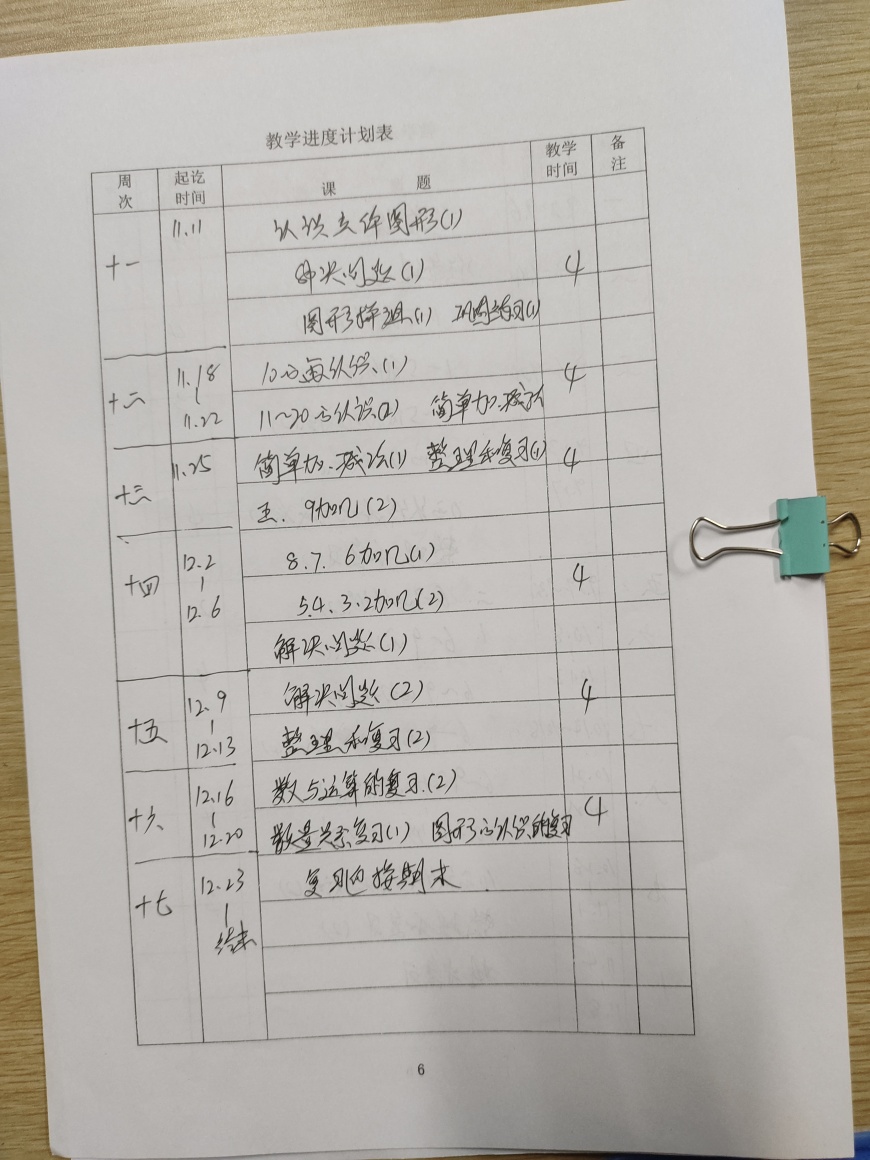 教学进度计划表
周次 起讫时间 课 题 教学时间 备注
十一 11.11 认识立体图形(1) 4
解决问题(1)
图形拼组(1) 巩固练习(1)
十二 11.18 | 11.22 10的再认识(1) 4
11~20的认识(2) 简单加、减法
十三 11.25 简单加、减法(1) 整理和复习(1) 4
五、9加几(2)
十四 12.2 | 12.6 8.7.6加几(1) 4
5.4.3.2加几(2)
解决问题(1)
十五 12.9 | 12.13 解决问题(2) 4
整理和复习(2)
十六 12.16 | 12.20 数与运算的复习(2) 4
数量关系复习(1) 图形的认识的复习
十七 12.23 | 结束 复习迎接期末
6